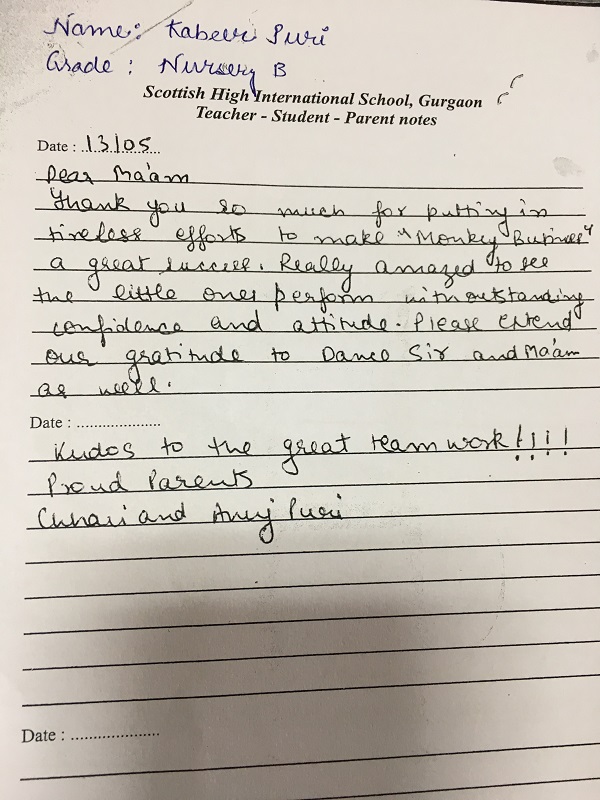 Name: Kabeer Puri
Grade: Nursery B
Scottish High International School, Gurgaon
Teacher - Student - Parent notes
Date : 13/05
Dear Ma'am
Thank you so much for putting in
tireless efforts to make "Monkey Business"
a great success. Really amazed to see
the little ones perform with outstanding
confidence and attitude. Please extend
our gratitude to Dance Sir and Ma'am
as well.
Date : ....................
Kudos to the great team work!!!!
Proud Parents
and Anuj Puri
Date : .....................